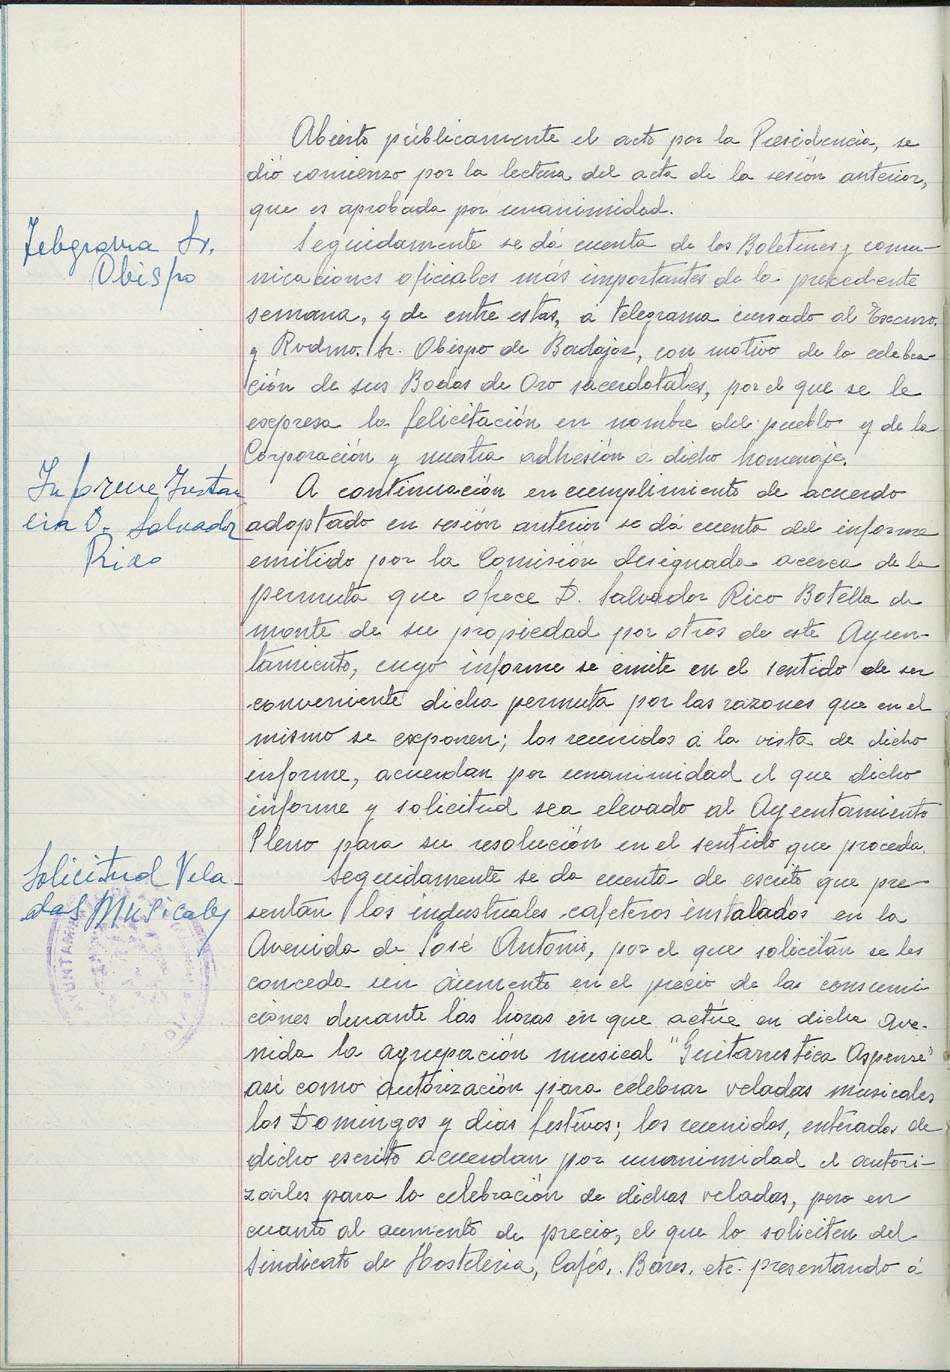 Abierto públicamente el acto por la Presidencia, se
dió comienzo por la lectura del acta de la sesión anterior,
que es aprobada por unanimidad.
Telegrama Sr.
Obispo
Seguidamente se dá cuenta de los Boletines y comu-
nicaciones oficiales más importantes de la precedente
semana, y de entre estas, a telegrama cursado al Excmo.
y Rvdmo. Sr. Obispo de Badajoz, con motivo de la celebra-
ción de sus Bodas de Oro sacerdotales, por el que se le
expresa la felicitación en nombre del pueblo y de la
Corporación y nuestra adhesión a dicho homenaje.
Informe Instan
cia D. Salvador
Rico
A continuación en cumplimiento de acuerdo
adoptado en sesión anterior se dá cuenta del informe
emitido por la Comisión designada acerca de la
permuta que ofrece D. Salvador Rico Botella de
monte de su propiedad por otros de este Ayun-
tamiento, cuyo informe se emite en el sentido de ser
conveniente dicha permuta por las razones que en el
mismo se exponen; los reunidos a la vista de dicho
informe, acuerdan por unanimidad el que dicho
informe y solicitud sea elevado al Ayuntamiento
Pleno para su resolución en el sentido que proceda.
Solicitud Vela-
das Musicales
Seguidamente se da cuenta de escrito que pre-
sentán los industriales cafeteros instalados en la
Avenida de José Antonio, por el que solicitán se les
conceda un aumento en el precio de las consumi
ciones durante las horas en que actúe en dicha Ave-
nida la agrupación musical "Guitarristica Aspense"
asi como autorización para celebrar veladas musicales
los Domingos y dias festivos; los reunidos, enterados de
dicho escrito acuerdan por unanimidad el autori-
zarles para la celebración de dichas veladas, pero en
cuanto al aumento de precio, el que lo soliciten del
Sindicato de Hosteleria, Cafés, Bares, etc. presentando á
AYUNTAMIENTO